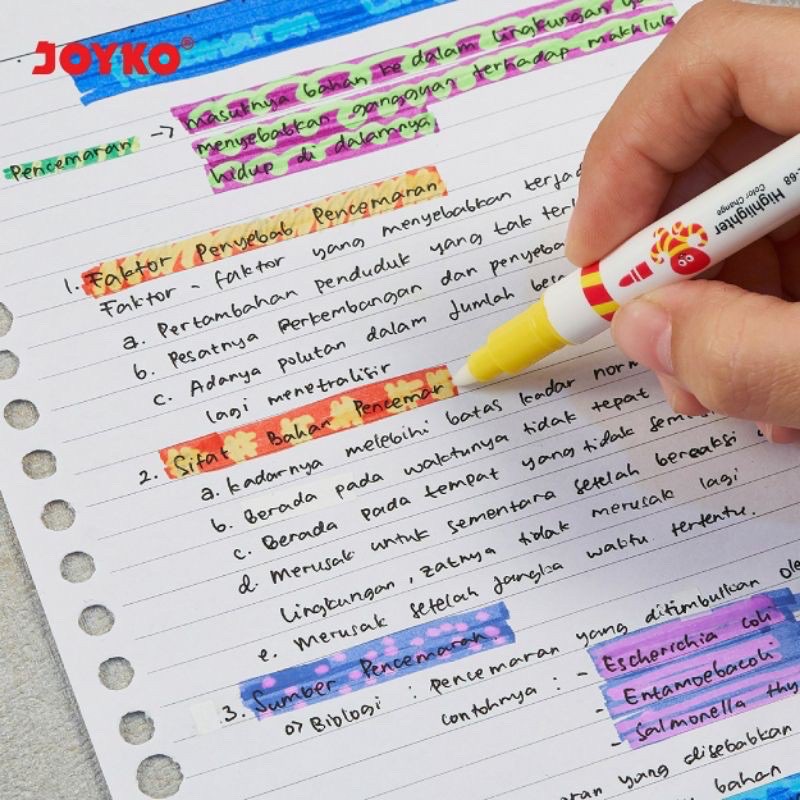 JOYKO®
Pencemaran -> masuknya bahan ke dalam lingkungan
menyebabkan gangguan terhadap makhluk
hidup di dalamnya
1. Faktor Penyebab Pencemaran
Faktor - faktor yang menyebabkan
a. Pertambahan penduduk yang tak
b. Pesatnya Perkembangan dan
c. Adanya polutan dalam Jumlah
lagi menetralisir
2. Sifat Bahan Pencemar
a. kadarnya melebihi batas kadar
b. Berada pada waktunya tidak tepat
c. Berada pada tempat yang tidak
d. Merusak untuk sementara setelah bereaksi
lingkungan, zatnya tidak merusak lagi
e. Merusak setelah jangka waktu tertentu.
3. Sumber Pencemaran
o) Biologi : pencemaran yang ditimbulkan
contohnya : - Escherichia coli
- Entamoebacoli
- Salmonella
yang disebabkan
bahan
Highlighter
Color Change